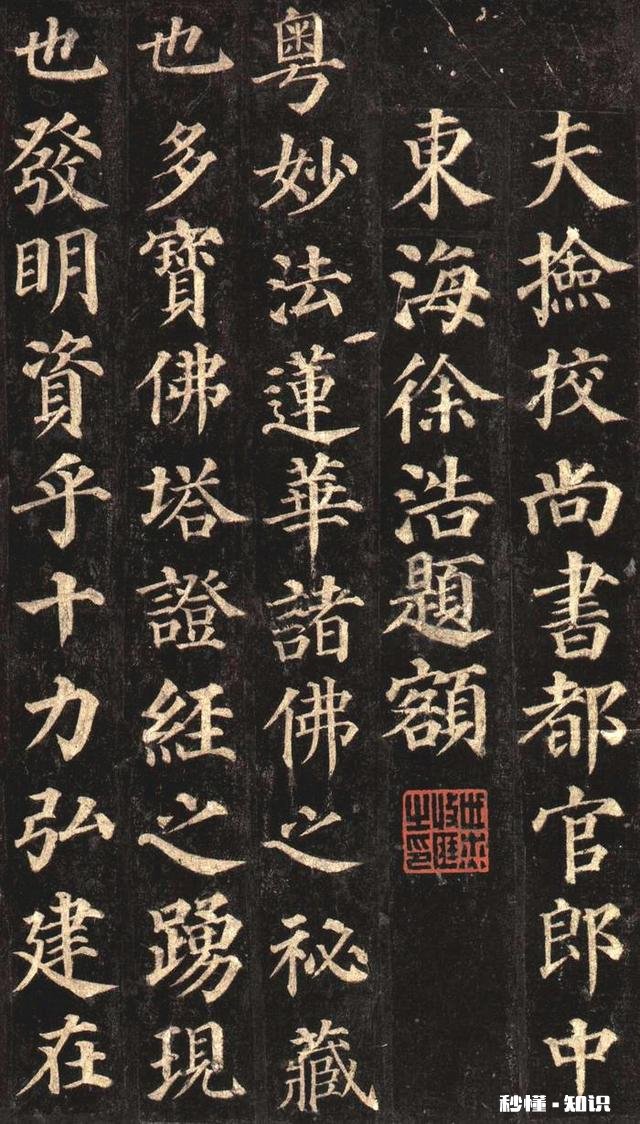 夫撿挍尚書都官郎中
東海徐浩題額
粵妙法蓮華諸佛之祕藏
也多寶佛塔證經之踴現
也發明資乎十力弘建在
秒懂·知识